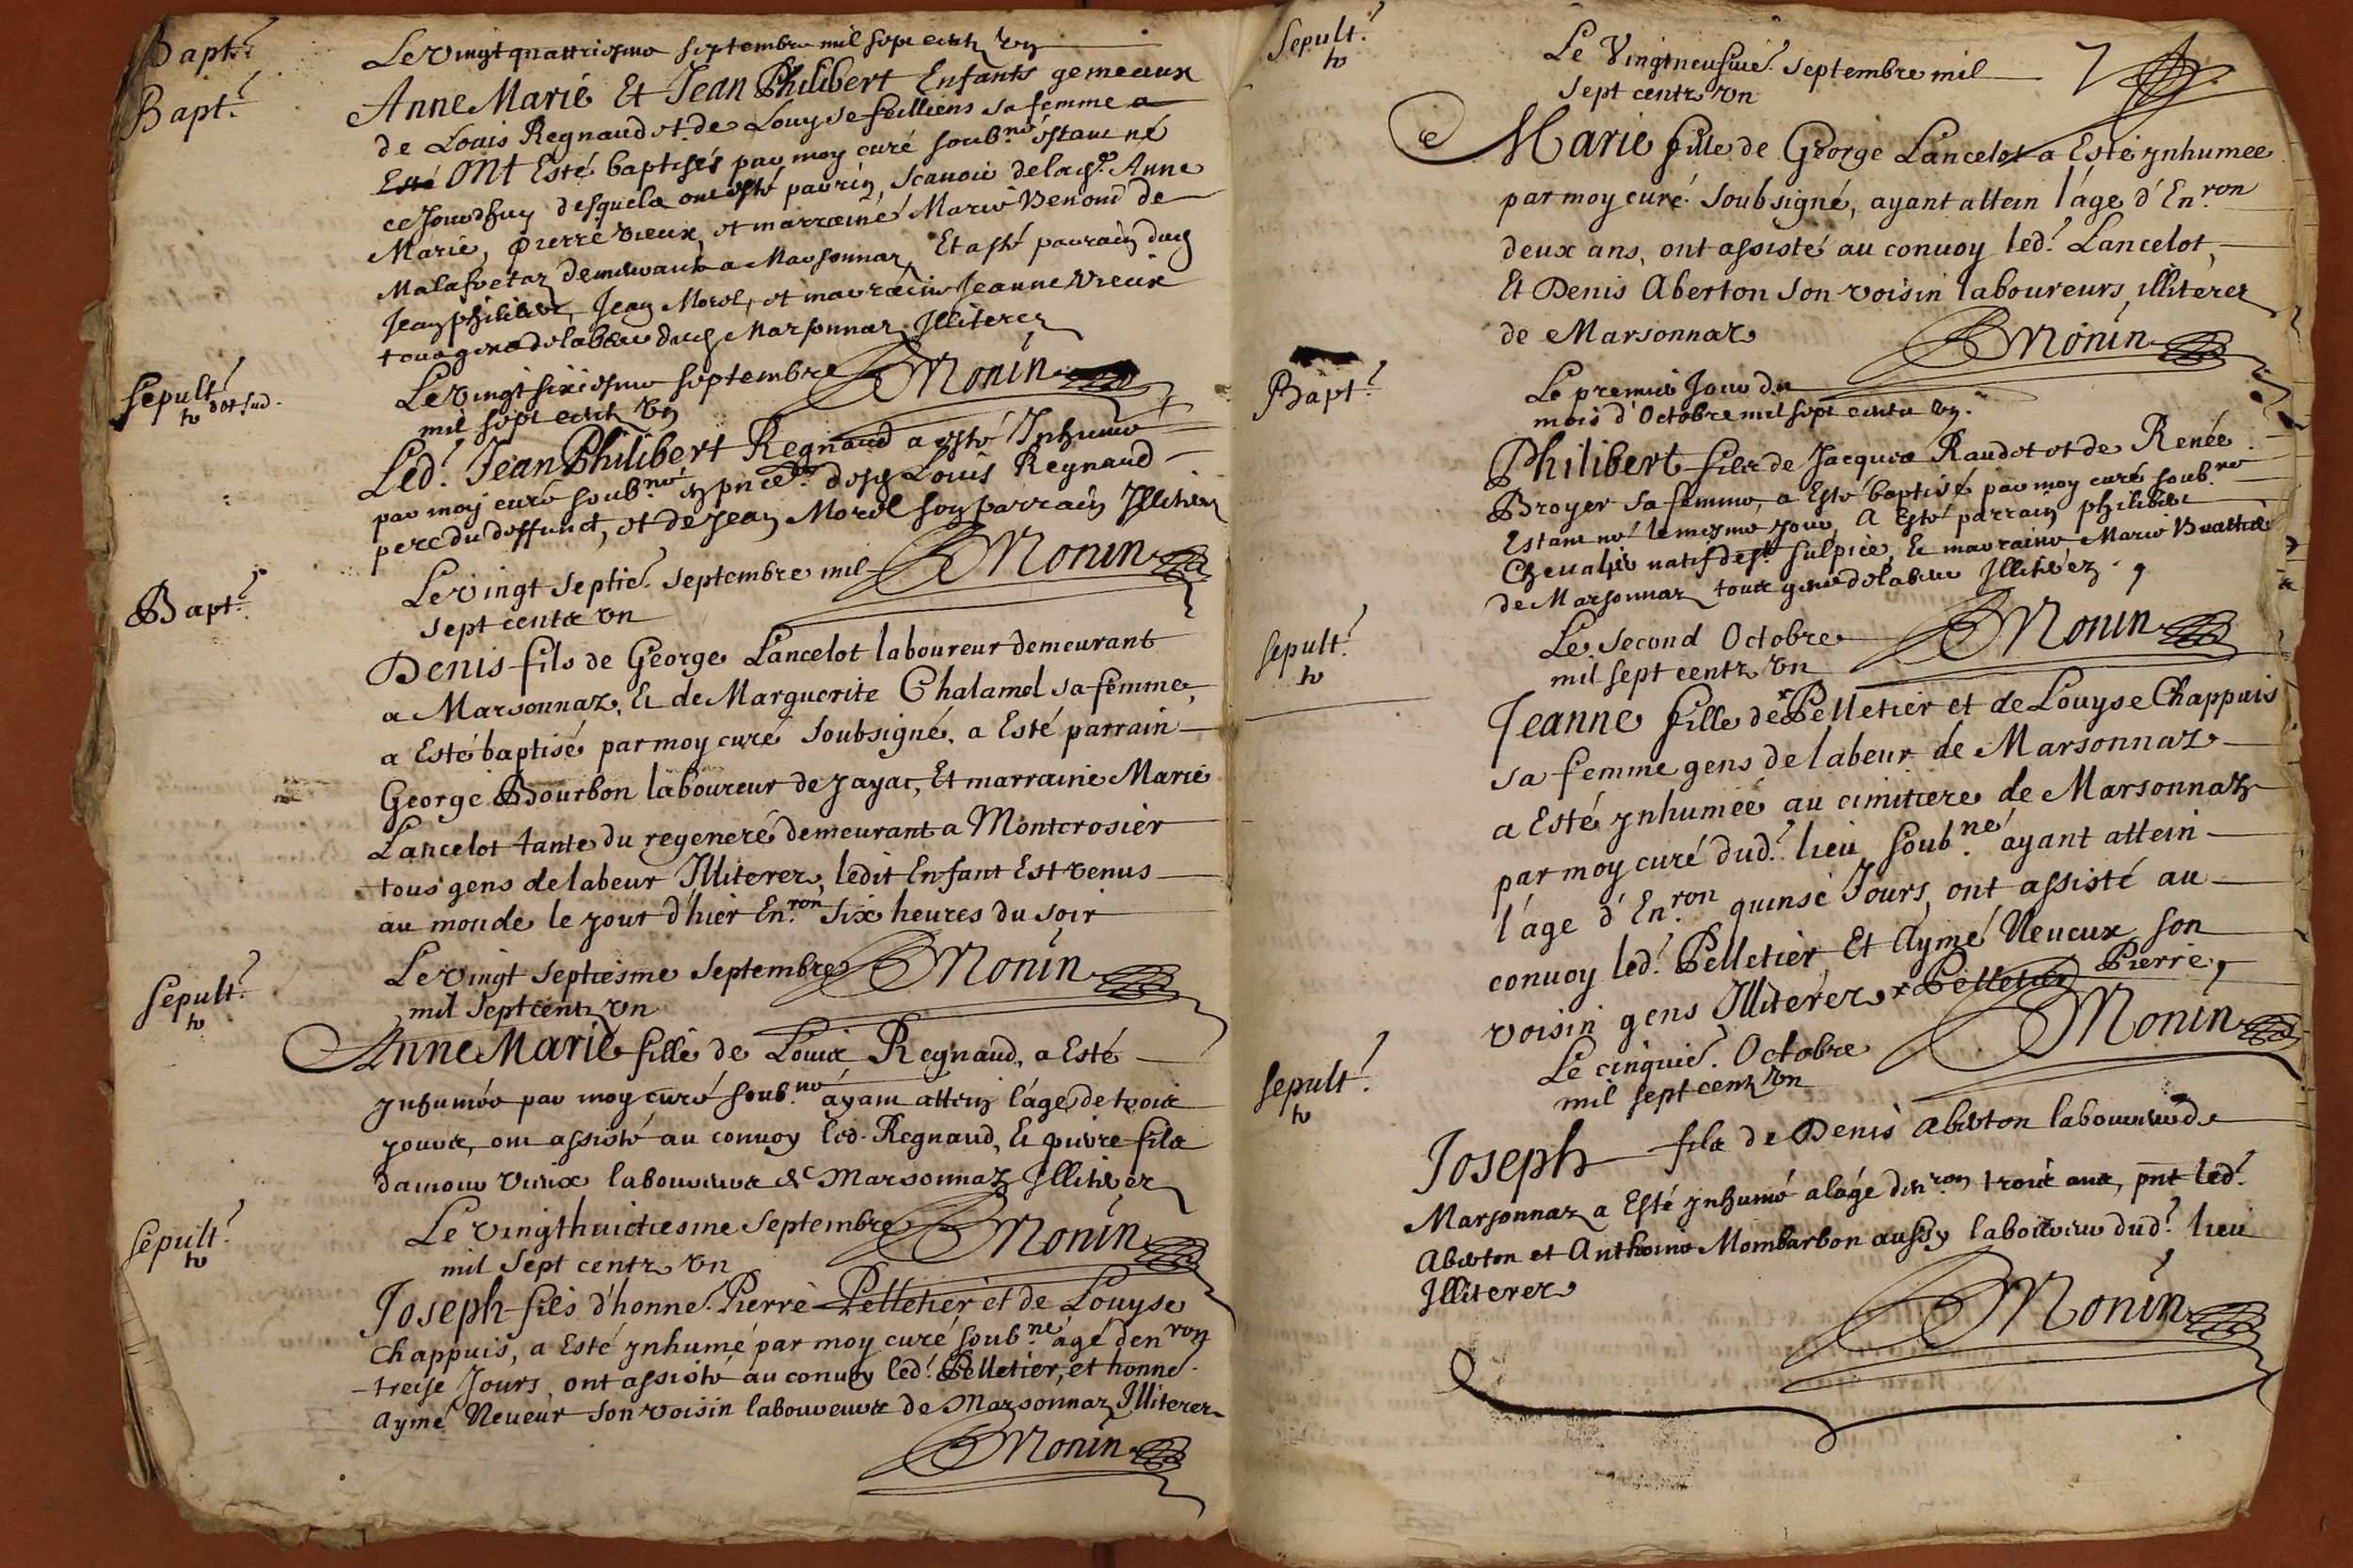 Bapt.
Bapt.
Le vingt quattriesme septembre mil sept centz vn
Anne Marie Et Jean Philibert Enfants gemeaux
de Louis Regnaud et de Louyse feilliens sa femme a
Esté ont Esté baptisés par moy curé soub.né estant né
ce Jourdhuy desquels ont esté parrin, scauoir de lad. Anne
Marie, pierre vieux, et marraine Marie Venond de
Malafretaz demeurant a Marsonnaz, Et a esté parrain dud
Jean philibert, Jean Morel, et marraine Jeanne vieux
tous gens de labeur dud Marsonnaz Illiterez
Sepult.
to
Le vingt sixiesme septembre Monin
mil sept centz vn
Led. Jean Philibert Regnaud a esté Inhumé
par moy curé soub.né en pnce. desd Louis Regnaud
pere du deffunct, et de Jean Morel son parrain Illiterez
Bapt.
Le vingt septie. septembre mil Monin
sept cents vn
Denis fils de George Lancelot laboureur demeurant
a Marsonnaz, Et de Marguerite Chalamel sa femme,
a Esté baptisé par moy curé soubsigné, a Esté parrain
George Bourbon laboureur de Jayac, Et marraine Marie
Lancelot tante du regeneré demeurant a Montcrosier
tous gens de labeur Illiterez, ledit Enfant Est venus
au monde le jour d'hier En.ron six heures du soir
Sepult.
to
Le vingt septiesme septembre Monin
mil sept centz vn
Anne Marie fille de Louis Regnaud, a Esté
ynhumée par moy curé soub.né ayant attein l'age de trois
jours, ont assisté au conuoy led. Regnaud, Et pierre fils
damour vieux laboureurs de Marsonnaz Illiterez
Sepult.
to
Le vingthuictiesme septembre Monin
mil sept centz vn
Joseph fils d'honne. Pierre Pelletier et de Louyse
Chappuis, a Esté ynhumé par moy curé soub.né agé den.ron
treise Jours, ont assisté au conuoy led. Pelletier, et honne.
aymé Neueux son voisin laboureurs de Marsonnaz Illiterez
Monin
Sepult.
to
Le Vingtneufuie. septembre mil 7
sept centz vn
Marie fille de George Lancelot a Esté ynhumee
par moy curé soubsigné, ayant attein l'age d'En.ron
deux ans, ont assisté au conuoy led. Lancelot,
Et Denis Aberton son voisin laboureurs illiterez
de Marsonnaz
Monin
Bapt.
Le premier Jour du
mois d'Octobre mil sept cents vn.
Philibert fils de Jacques Raudot et de Renée
Broyer sa femme, a Esté baptisé par moy curé soub.né
Estant né le mesme jour, a Esté parrain philibert
Cheualier natif de st. sulpice, Et marraine Marie Buattié
de Marsonnaz tous gens de labeur Illiterez.
Sepult.
to
Le second Octobre Monin
mil sept centz vn
Jeanne fille de x Pelletier et de Louyse Chappuis
sa femme gens de labeur de Marsonnaz
a Esté ynhumée au cimitiere de Marsonnaz
par moy curé dud. lieu soub.né ayant attein
l'age d'En.ron quinse Jours, ont assisté au
conuoy led. Pelletier, Et Aymé Neueux son
voisin gens Illiterez x Pelletier Pierre,
Sepult.
to
Le cinquie. Octobre Monin
mil sept centz vn
Joseph fils de Denis aberton laboureur de
Marsonnaz a Esté ynhumé a lage den.ron trois ans, pnt led.
Aberton et Anthoine Mombarbon aussy laboureur dud. lieu
Illiterez
Monin